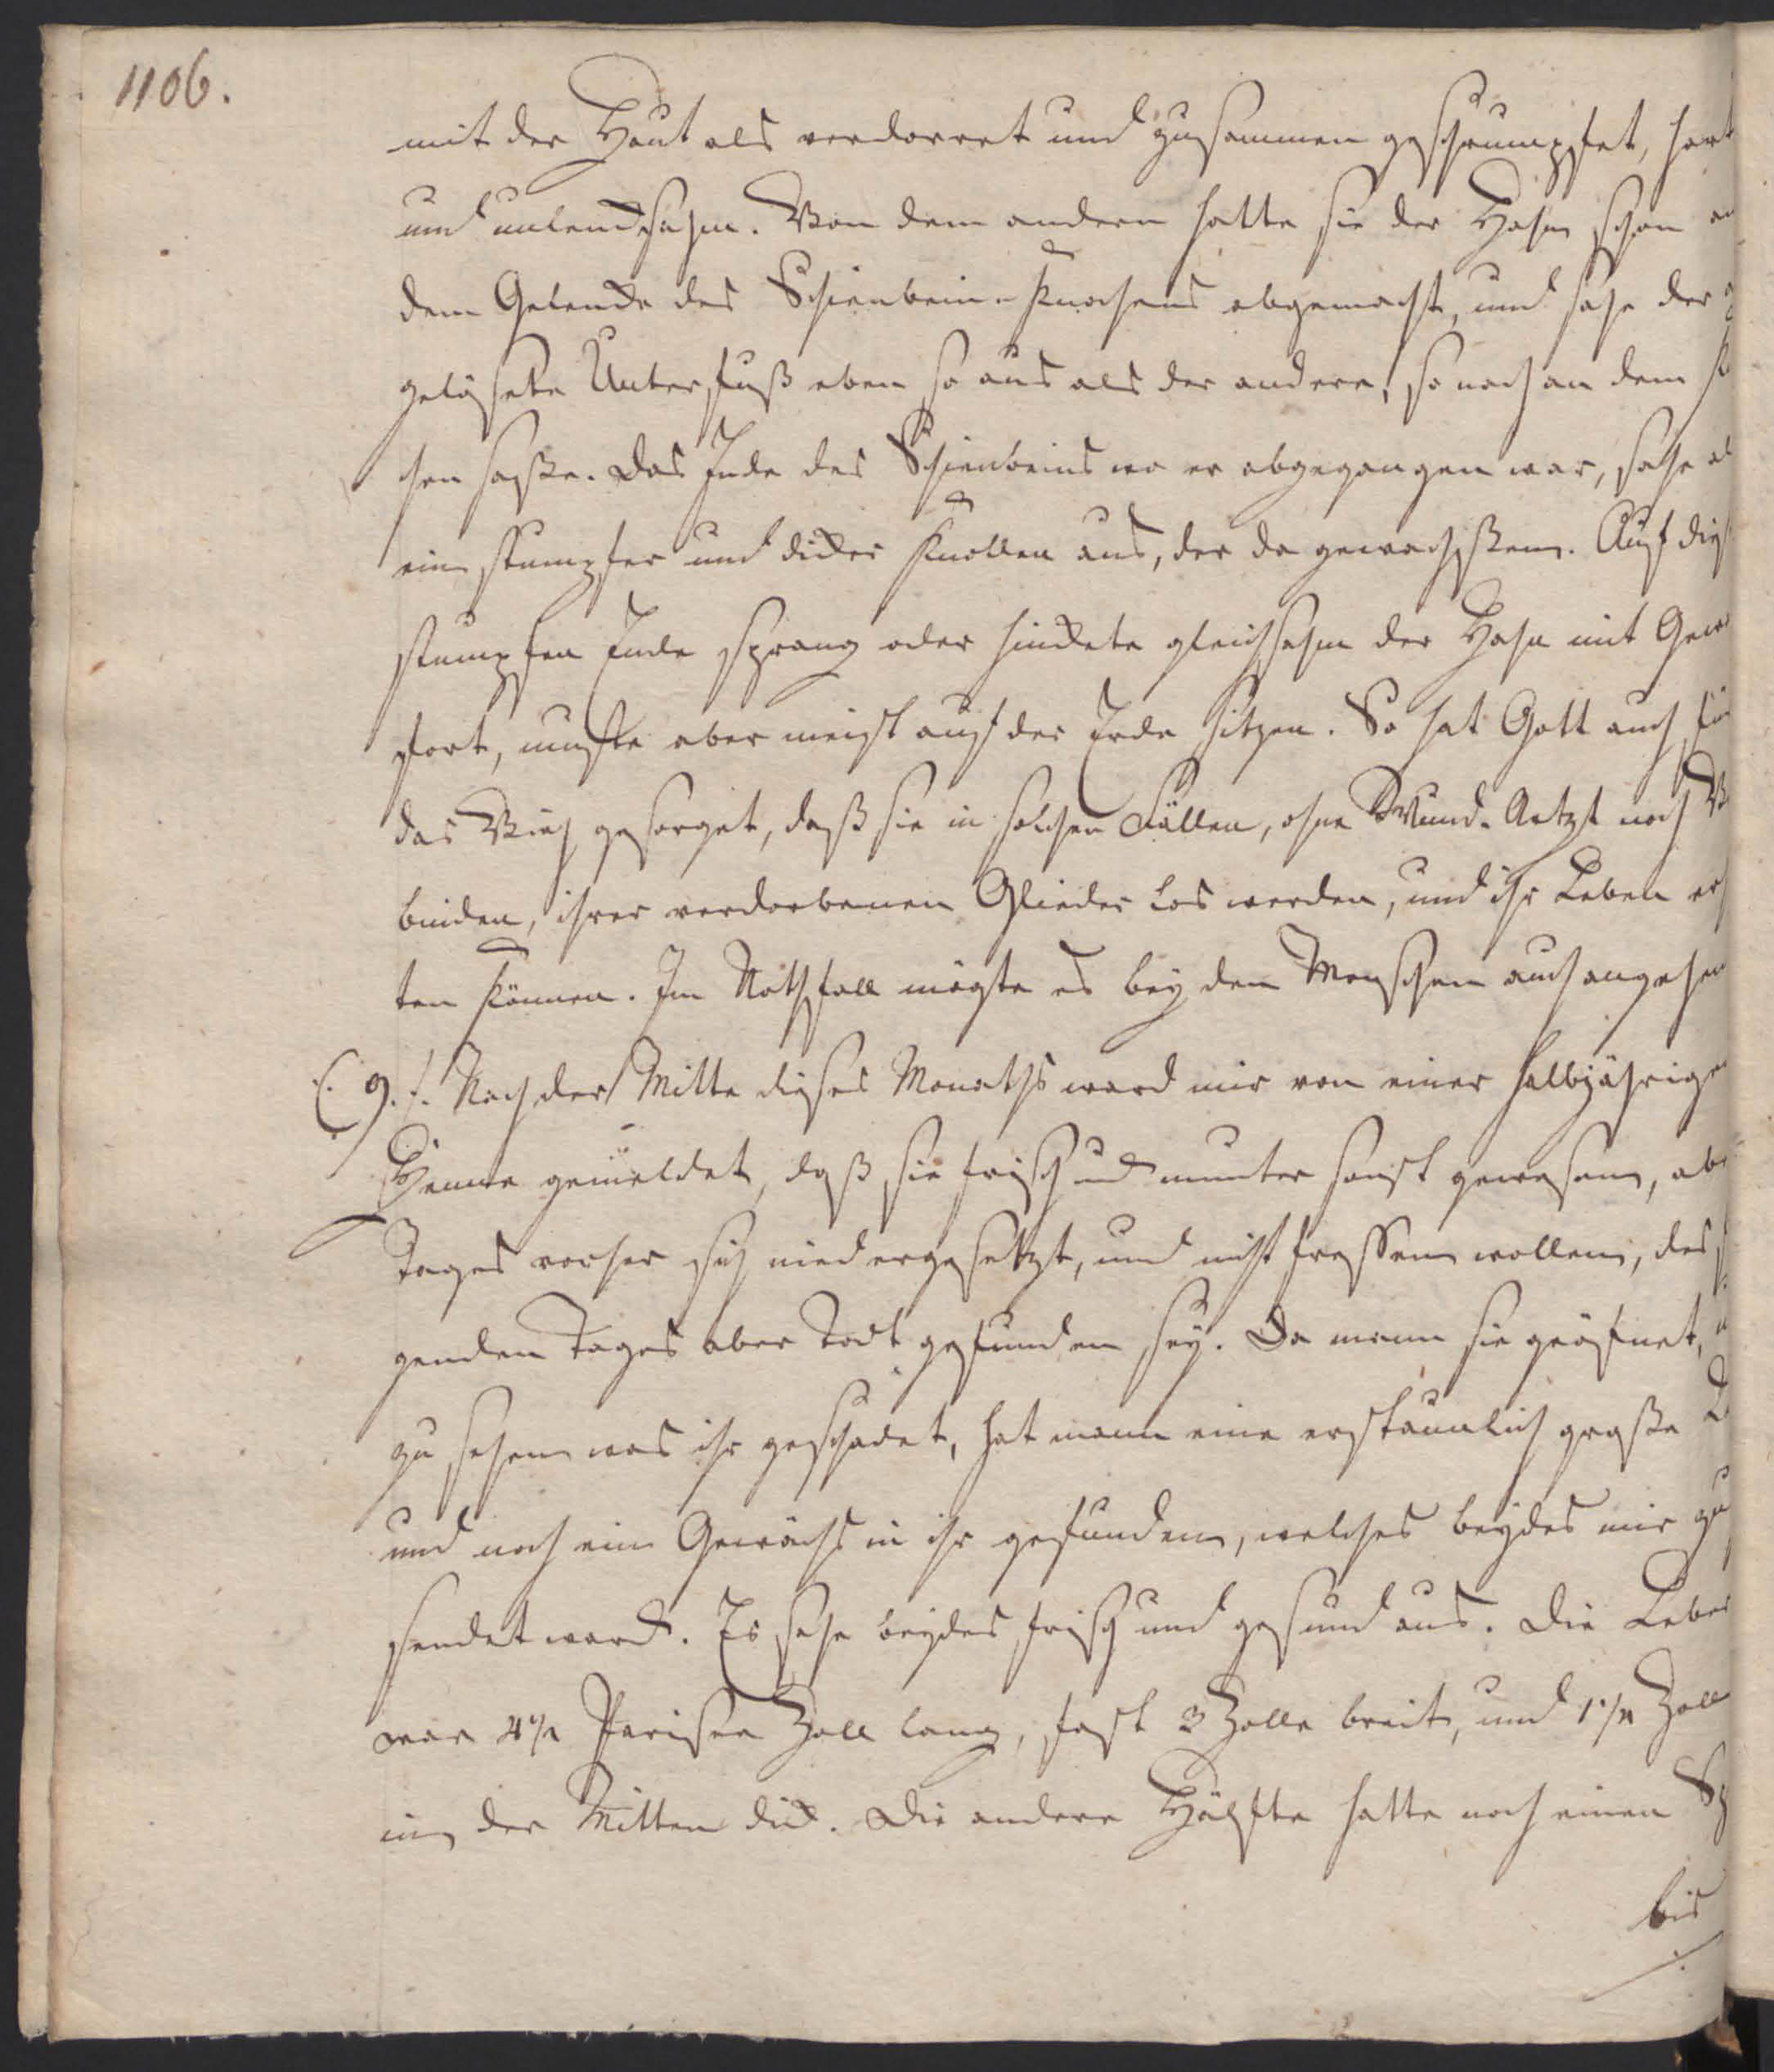 1106.
mit der Haut als verdorret und zusammen geschrumpfet, hart
und unlencksahm. Von dem andern hatte sie der Hahn schon an
dem Gelencke des Schienbein-Knochens abgemacht, und sahe der
gelösete Unterfuß eben so aus als der andere, so noch an dem
chen saße. Das Ende des Schienbeins wo er abgegangen war, sahe al
ein stumpfer und dicker Knollen aus, der da gewachsen. Auf dies
stumpfen Ende sprang oder hinckete gleichsahm der Hahn mit Gew
fort, muste aber meist auf der Erde sitzen. So hat Gott auch für
das Vieh gesorget, daß sie in solchen Fällen, ohne Wund-Artzt noch
binden, ihrer verdorbenen Glieder los werden, und ihr Leben er
ten können. Im Nothfall mögte es bey den Menschen auch angehen
(:9.:) Nach der Mitte dieses Monaths ward mir von einer halbjährigen
Henne gemeldet, daß sie frisch und munter sonst gewesen, ab
Tages vorher sich niedergesetzt, und nicht fressen wollen, des
genden Tages aber todt gefunden sey. Da mann sie geöfnet,
zu sehen was ihr geschadet, hat mann eine erstaunlich große
und noch ein Gewächs in ihr gefunden, welches beydes mir zu
sendet ward. Es sahe beydes frisch und gesund aus. Die Leber
war 4 1/2 Pariser Zoll lang, fast 3 Zolle breit, und 1 1/2 Zoll
in der Mitten dick. Die andere Hälfte hatte noch einen
bis